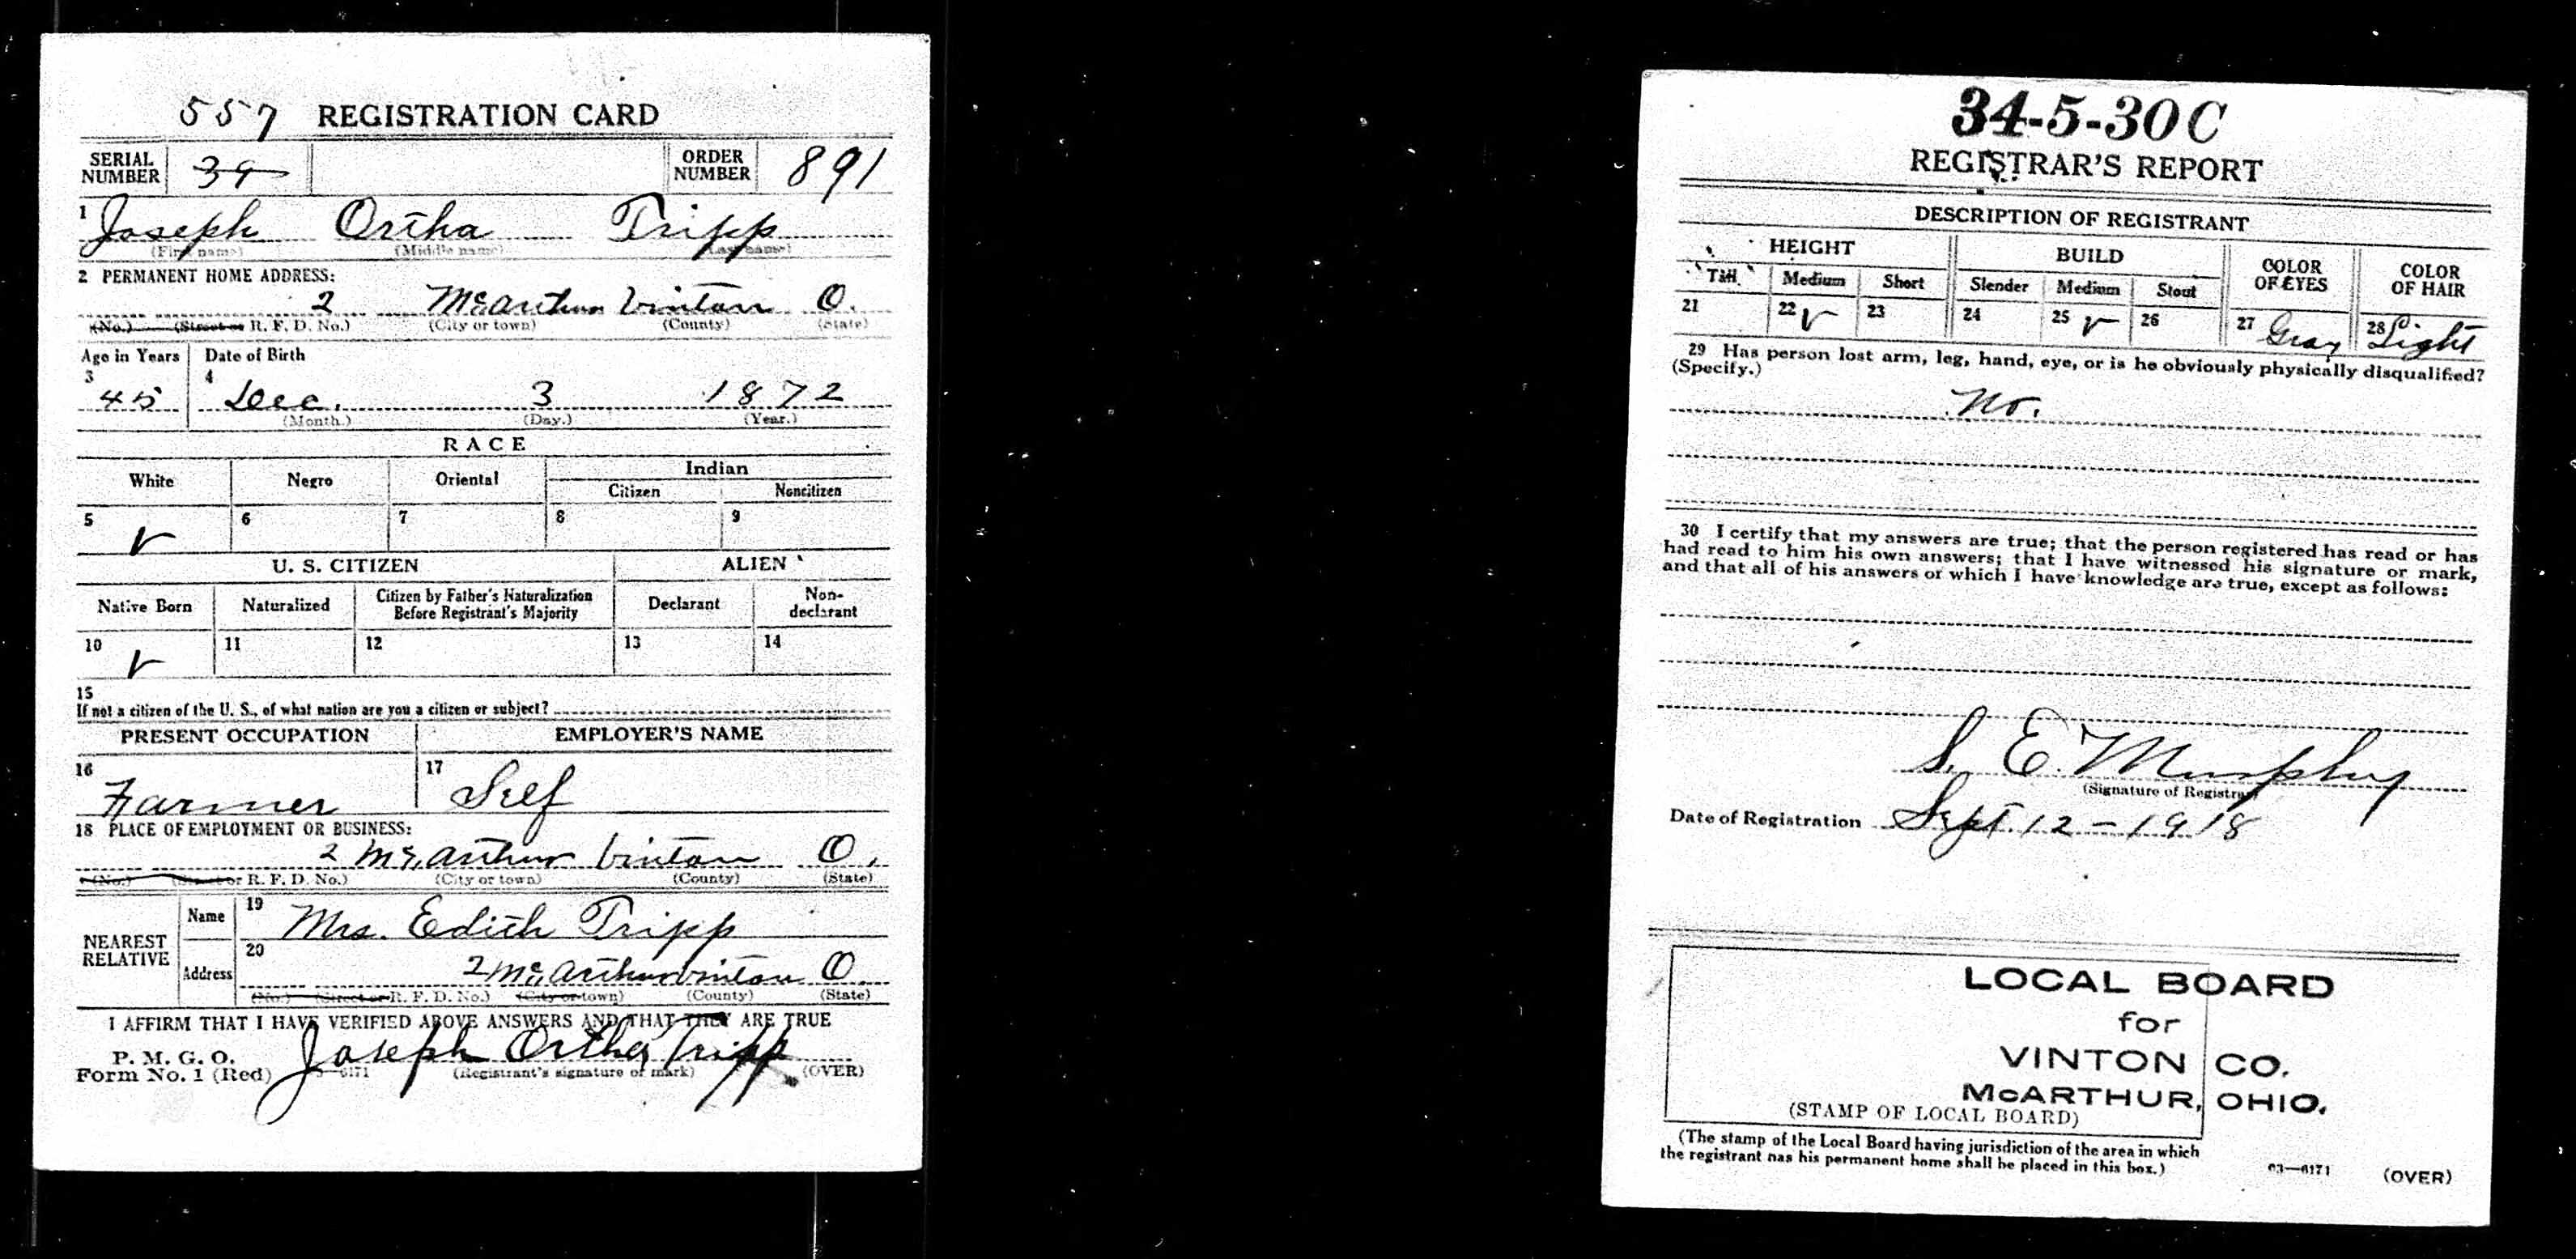 557 REGISTRATION CARD
SERIAL NUMBER 39 ORDER NUMBER 891
1 Joseph Ortha Tripp
(First name) (Middle name) (Last name)
2 PERMANENT HOME ADDRESS:
2 McArthur Vinton O.
(No.) (Street or R. F. D. No.) (City or town) (County) (State)
Age in Years Date of Birth
3 4
45 Dec. 3 1872
(Month.) (Day.) (Year.)
RACE
White Negro Oriental Indian
Citizen Noncitizen
5 6 7 8 9
U. S. CITIZEN ALIEN
Native Born Naturalized Citizen by Father's Naturalization Before Registrant's Majority Declarant Non-declarant
10 11 12 13 14
15
If not a citizen of the U. S., of what nation are you a citizen or subject?
PRESENT OCCUPATION EMPLOYER'S NAME
16 Farmer 17 Self
18 PLACE OF EMPLOYMENT OR BUSINESS:
2 McArthur Vinton O.
(No.) (Street or R. F. D. No.) (City or town) (County) (State)
NEAREST RELATIVE
Name 19 Mrs. Edith Tripp
Address 20 2 McArthur Vinton O.
(No.) (Street or R. F. D. No.) (City or town) (County) (State)
I AFFIRM THAT I HAVE VERIFIED ABOVE ANSWERS AND THAT THEY ARE TRUE
P. M. G. O.
Form No. 1 (Red) Joseph Ortha Tripp
3—6171 (Registrant's signature or mark) (OVER)
34-5-30 C
REGISTRAR'S REPORT
DESCRIPTION OF REGISTRANT
HEIGHT BUILD COLOR OF EYES COLOR OF HAIR
Tall Medium Short Slender Medium Stout
21 22 23 24 25 26 27 Gray 28 Light
29 Has person lost arm, leg, hand, eye, or is he obviously physically disqualified?
(Specify.)
No.
30 I certify that my answers are true; that the person registered has read or has
had read to him his own answers; that I have witnessed his signature or mark,
and that all of his answers of which I have knowledge are true, except as follows:
S. E. Murphy
(Signature of Registrar)
Date of Registration Sept. 12 - 1918
LOCAL BOARD
for
VINTON CO.
McARTHUR, OHIO.
(STAMP OF LOCAL BOARD)
(The stamp of the Local Board having jurisdiction of the area in which
the registrant has his permanent home shall be placed in this box.)
03—6171 (OVER)